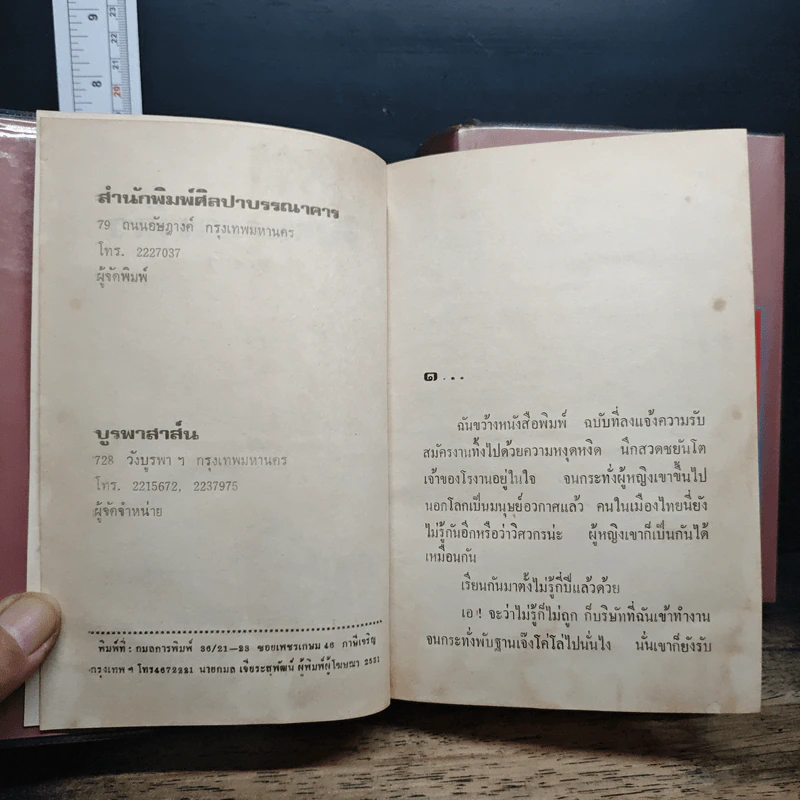 สำนักพิมพ์ศิลปาบรรณาคาร
79 ถนนอัษฎางค์ กรุงเทพมหานคร
โทร. 2227037
ผู้จัดพิมพ์
บูรพาสาส์น
728 วังบูรพา ฯ กรุงเทพมหานคร
โทร. 2215672, 2237975
ผู้จัดจำหน่าย
พิมพ์ที่ : กมลการพิมพ์ 36/21-23 ซอยเพชรเกษม 46 ภาษีเจริญ
กรุงเทพ ฯ โทร4672221 นายกมล เจียระสุพัฒน์ ผู้พิมพ์ผู้โฆษณา 2531
๑...
ฉันขว้างหนังสือพิมพ์ ฉบับที่ลงแจ้งความรับ
สมัครงานทิ้งไปด้วยความหงุดหงิด นึกสวดชยันโต
เจ้าของโรงานอยู่ในใจ จนกระทั่งผู้หญิงเขาขึ้นไป
นอกโลกเป็นมนุษย์อวกาศแล้ว คนในเมืองไทยนี่ยัง
ไม่รู้กันอีกหรือว่าวิศวกรน่ะ ผู้หญิงเขาก็เป็นกันได้
เหมือนกัน
เรียนกันมาตั้งไม่รู้กี่ปีแล้วด้วย
เอ! จะว่าไม่รู้ก็ไม่ถูก ก็บริษัทที่ฉันเข้าทำงาน
จนกระทั่งพับฐานเจ๊งโค่โล่ไปนั่นไง นั่นเขาก็ยังรับ
9
8
23
22
21
20
19